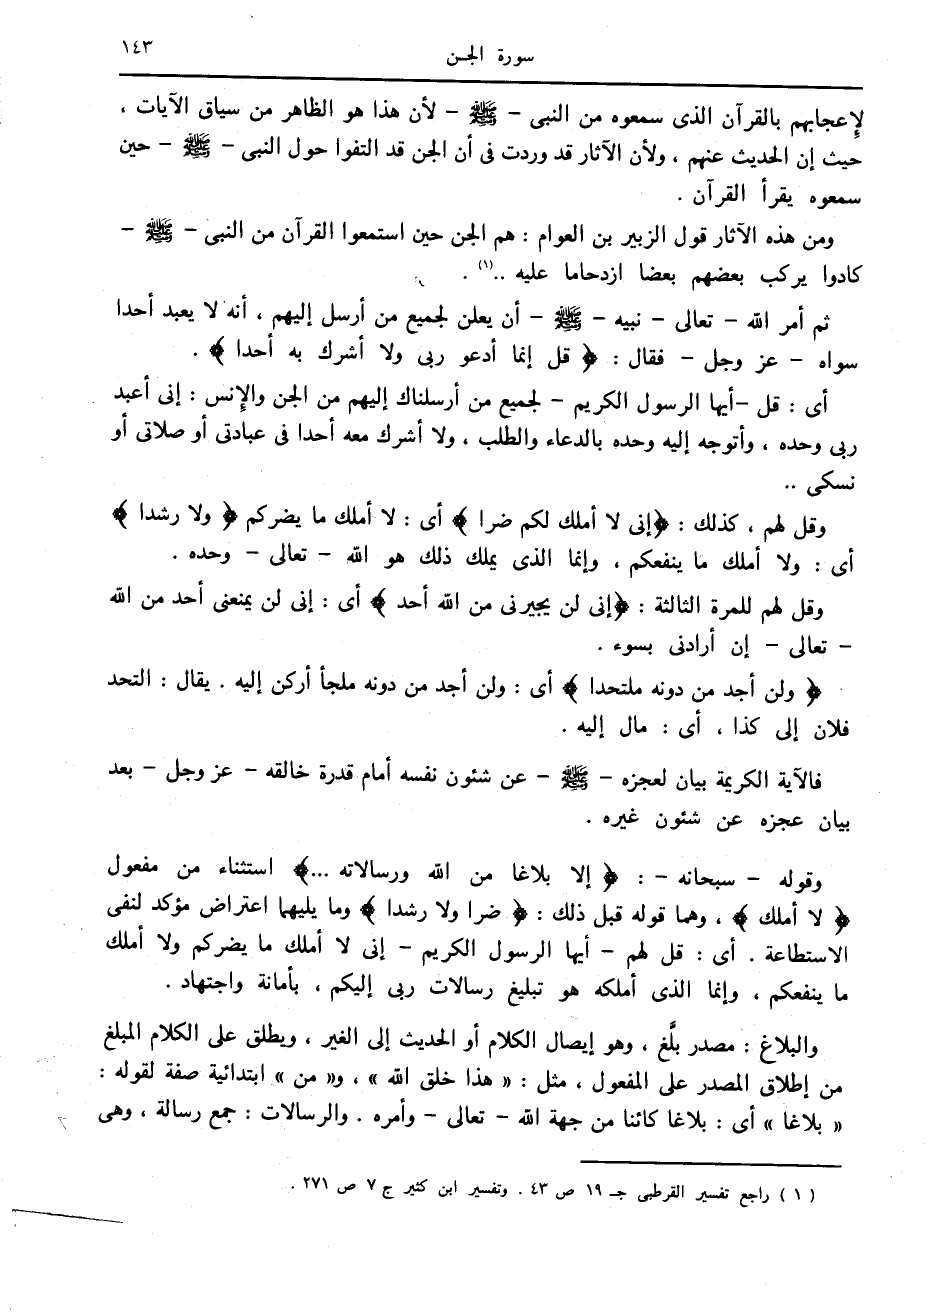 سورة الجن
١٤٣
لإعجابهم بالقرآن الذى سمعوه من النبى - ﷺ - لأن هذا هو الظاهر من سياق الآيات ،
حيث إن الحديث عنهم ، ولأن الآثار قد وردت فى أن الجن قد التفوا حول النبى - ﷺ - حين
سمعوه يقرأ القرآن .
ومن هذه الآثار قول الزبير بن العوام : هم الجن حين استمعوا القرآن من النبى - ﷺ -
كادوا يركب بعضهم بعضا ازدحاما عليه ..(١) .
ثم أمر الله - تعالى - نبيه - ﷺ - أن يعلن لجميع من أرسل إليهم ، أنه لا يعبد أحدا
سواه - عز وجل - فقال : ﴿ قل إنما أدعو ربى ولا أشرك به أحدا ﴾ .
أى : قل -أيها الرسول الكريم - لجميع من أرسلناك إليهم من الجن والإنس : إنى أعبد
ربى وحده ، وأتوجه إليه وحده بالدعاء والطلب ، ولا أشرك معه أحدا فى عبادتى أو صلاتى أو
نسكى ..
وقل لهم ، كذلك : ﴿إنى لا أملك لكم ضرا ﴾ أى : لا أملك ما يضركم ﴿ ولا رشدا ﴾
أى : ولا أملك ما ينفعكم ، وإنما الذى يملك ذلك هو الله - تعالى - وحده .
وقل لهم للمرة الثالثة : ﴿إنى لن يجيرنى من الله أحد ﴾ أى : إنى لن يمنعنى أحد من الله
- تعالى - إن أرادنى بسوء .
﴿ ولن أجد من دونه ملتحدا ﴾ أى : ولن أجد من دونه ملجأ أركن إليه . يقال : التحد
فلان إلى كذا ، أى : مال إليه .
فالآية الكريمة بيان لعجزه - ﷺ - عن شئون نفسه أمام قدرة خالقه - عز وجل - بعد
بيان عجزه عن شئون غيره .
وقوله - سبحانه - : ﴿ إلا بلاغا من الله ورسالاته ...﴾ استثناء من مفعول
﴿ لا أملك ﴾ ، وهما قوله قبل ذلك : ﴿ ضرا ولا رشدا ﴾ وما يليهما اعتراض مؤكد لنفى
الاستطاعة . أى : قل لهم - أيها الرسول الكريم - إنى لا أملك ما يضركم ولا أملك
ما ينفعكم ، وإنما الذى أملكه هو تبليغ رسالات ربى إليكم ، بأمانة واجتهاد .
والبلاغ : مصدر بلَّغ ، وهو إيصال الكلام أو الحديث إلى الغير ، ويطلق على الكلام المبلغ
من إطلاق المصدر على المفعول ، مثل : « هذا خلق الله » ، و« من » ابتدائية صفة لقوله :
« بلاغا » أى : بلاغا كائنا من جهة الله - تعالى - وأمره . والرسالات : جمع رسالة ، وهى
( ١ ) راجع تفسير القرطبى جـ ١٩ ص ٤٣ . وتفسير ابن كثير ج ٧ ص ٢٧١ .